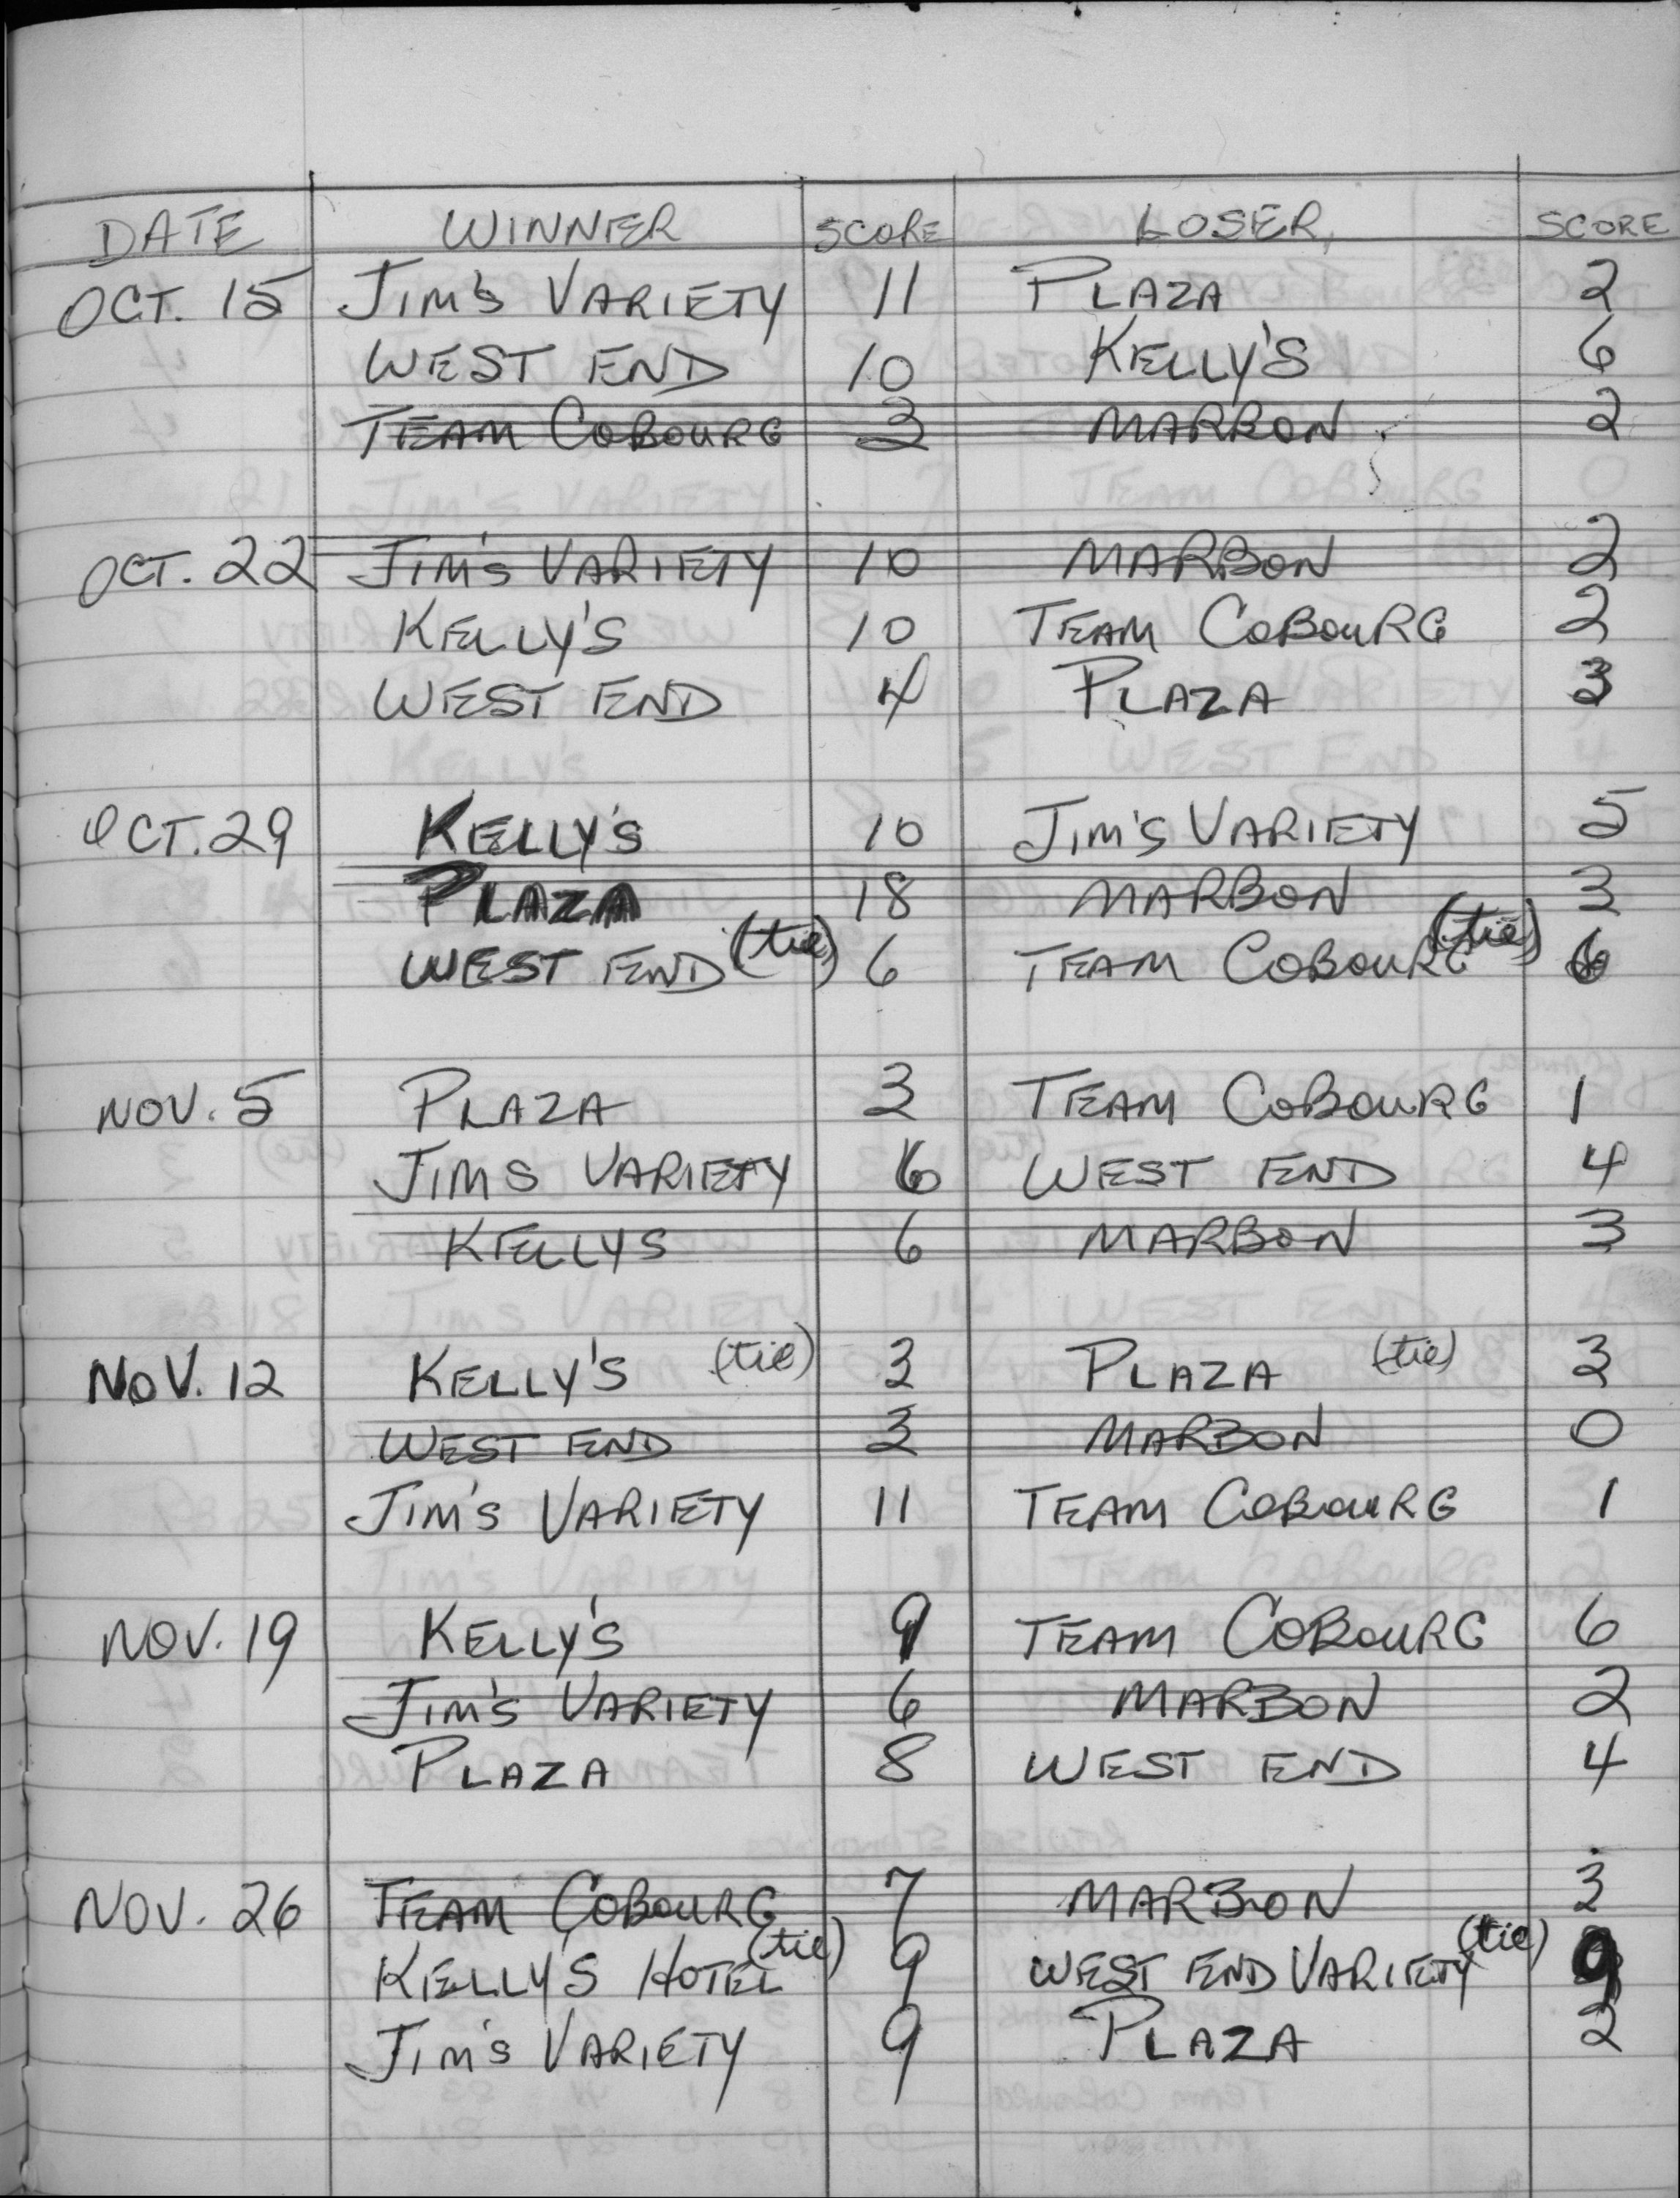 DATE WINNER SCORE LOSER SCORE
OCT. 15 JIM'S VARIETY 11 PLAZA 2
WEST END 10 KELLY'S 6
TEAM COBOURG 3 MARBON 2
OCT. 22 JIM'S VARIETY 10 MARBON 2
KELLY'S 10 TEAM COBOURG 2
WEST END 4 PLAZA 3
OCT. 29 KELLY'S 10 JIM'S VARIETY 5
PLAZA 18 MARBON 3
WEST END (tie) 6 TEAM COBOURG (tie) 6
NOV. 5 PLAZA 3 TEAM COBOURG 1
JIMS VARIETY 6 WEST END 4
KELLYS 6 MARBON 3
NOV. 12 KELLY'S (tie) 3 PLAZA (tie) 3
WEST END 3 MARBON 0
JIM'S VARIETY 11 TEAM COBOURG 1
NOV. 19 KELLY'S 9 TEAM COBOURG 6
JIM'S VARIETY 6 MARBON 2
PLAZA 8 WEST END 4
NOV. 26 TEAM COBOURG 7 MARBON 3
KELLY'S HOTEL (tie) 9 WEST END VARIETY (tie) 9
JIM'S VARIETY 9 PLAZA 2